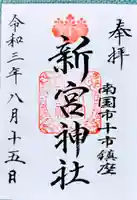 奉拝
南国市十市鎮座
新宮神社
令和三年八月十五日